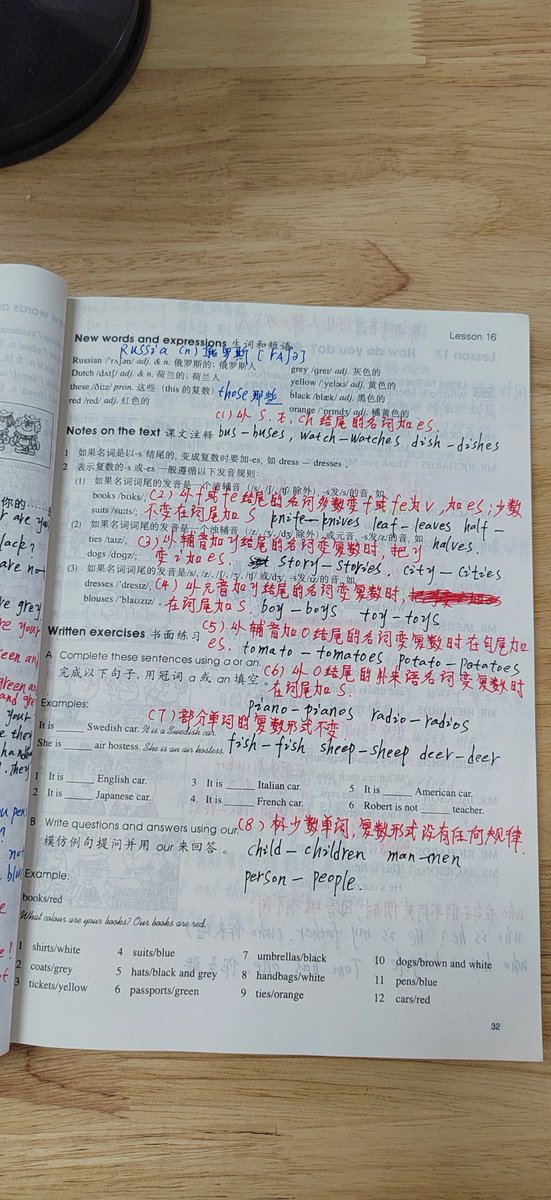 Lesson 16
New words and expressions 生词和短语
Russia (n) 俄罗斯 [rʌʃə]
Russian /ˈrʌʃən/ adj. & n. 俄罗斯的; 俄罗斯人
Dutch /dʌtʃ/ adj. & n. 荷兰的; 荷兰人
these /ði:z/ pron. 这些 (this 的复数)
those 那些
red /red/ adj. 红色的
grey /greɪ/ adj. 灰色的
yellow /ˈyeləʊ/ adj. 黄色的
black /blæk/ adj. 黑色的
orange /ˈɒrɪndʒ/ adj. 橘黄色的
(1) 以 s, x, ch 结尾的名词加es.
Notes on the text 课文注释
bus-buses, watch-watches dish-dishes
1 如果名词是以-s 结尾的, 变成复数时要加-es, 如 dress — dresses 。
2 表示复数的-s 或-es 一般遵循以下发音规则:
(1) 如果名词词尾的发音是一个清辅音
books /bʊks/,
suits /su:ts/;
(2) 以f或fe结尾的名词多数变f或fe为v, 加es; 少数
不变在词尾加s knife-knives leaf-leaves half-
halves.
(2) 如果名词词尾的发音是一个浊辅音
ties /taɪz/,
dogs /dɒgz/;
(3) 以辅音加y结尾的名词变复数时, 把y
变i加es. story-stories, city-cities
(3) 如果名词词尾的发音是/s/, /z/,
dresses /ˈdresɪz/,
blouses /ˈblaʊzɪz/
(4) 以元音加y结尾的名词变复数时,
在词尾加s. boy-boys toy-toys
Written exercises 书面练习
(5) 以辅音加o结尾的名词变复数时在句尾加
es. tomato-tomatoes potato-potatoes
A Complete these sentences using a or an.
完成以下句子, 用冠词 a 或 an 填空
(6) 以o结尾的外来语名词变复数时
在词尾加s.
piano-pianos radio-radios
Examples:
(7) 部分单词的复数形式不变
It is ______ Swedish car. It is a Swedish car.
She is ______ air hostess. She is an air hostess.
fish-fish sheep-sheep deer-deer
1 It is ______ English car.
2 It is ______ Japanese car.
3 It is ______ Italian car.
4. It is ______ French car.
5 It is ______ American car.
6 Robert is not ______ teacher.
B Write questions and answers using our
模仿例句提问并用 our 来回答。
(8) 极少数单词, 复数形式没有任何规律.
child-children man-men
person-people.
Example:
books/red
What colour are your books? Our books are red.
1 shirts/white
2 coats/grey
3 tickets/yellow
4 suits/blue
5 hats/black and grey
6 passports/green
7 umbrellas/black
8 handbags/white
9 ties/orange
10 dogs/brown and white
11 pens/blue
12 cars/red
32